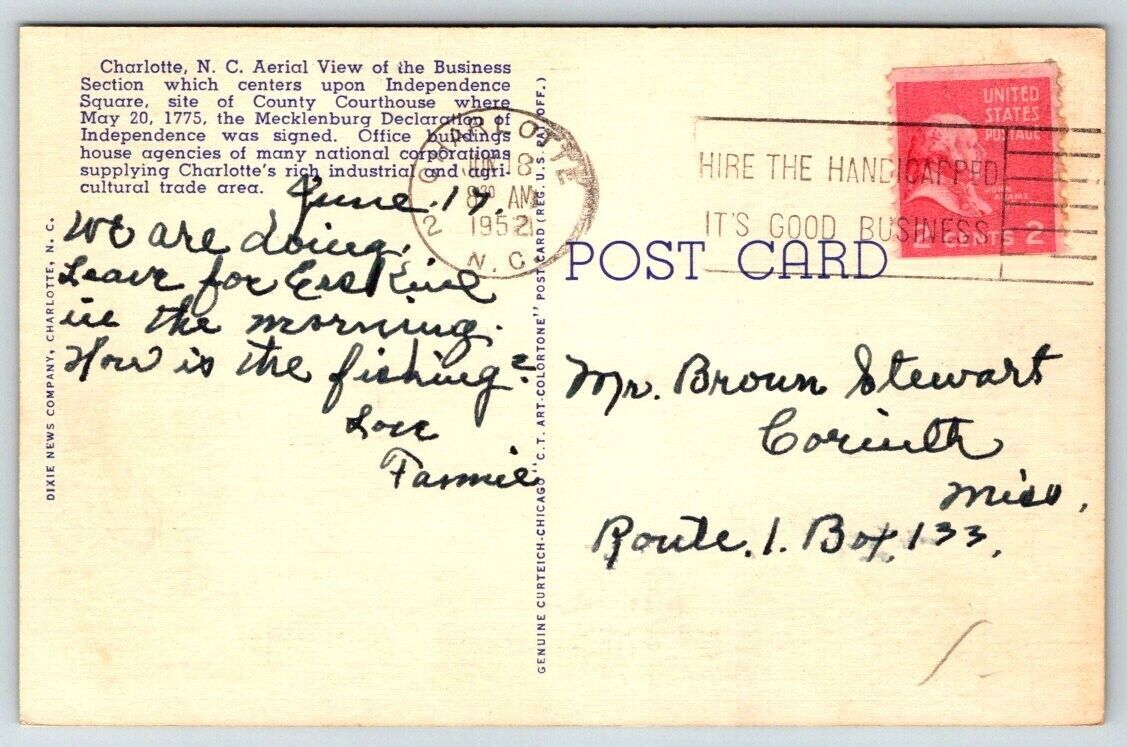 Charlotte, N. C. Aerial View of the Business
Section which centers upon Independence
Square, site of County Courthouse where
May 20, 1775, the Mecklenburg Declaration of
Independence was signed. Office buildings
house agencies of many national corporations
supplying Charlotte's rich industrial and agri-
cultural trade area.
June. 17.
We are doing.
Leave for Erskine
in the morning.
How is the fishing?
Love
Fannie
DIXIE NEWS COMPANY, CHARLOTTE, N. C.
GENUINE CURTEICH-CHICAGO "C.T. ART-COLORTONE" POST CARD (REG. U.S. PAT. OFF.)
CHARLOTTE
JUN 18
8 30 AM
1952
N. C.
2
HIRE THE HANDICAPPED
IT'S GOOD BUSINESS
UNITED
STATES
POSTAGE
JOHN
ADAMS
2 CENTS 2
POST CARD
Mr. Brown Stewart
Corinth
Miss.
Route. 1. Box. 133.